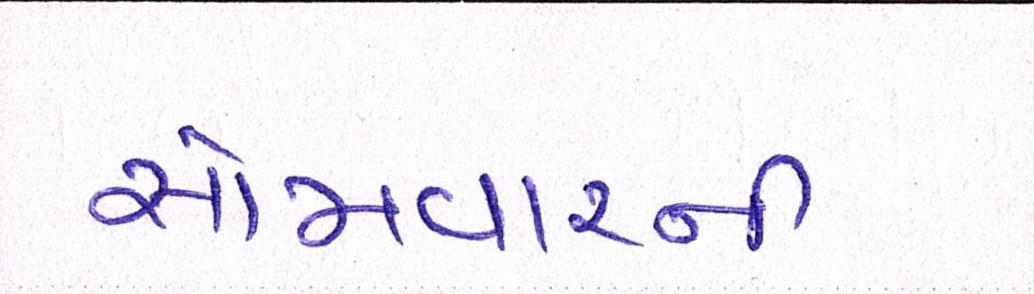 સોમવારની